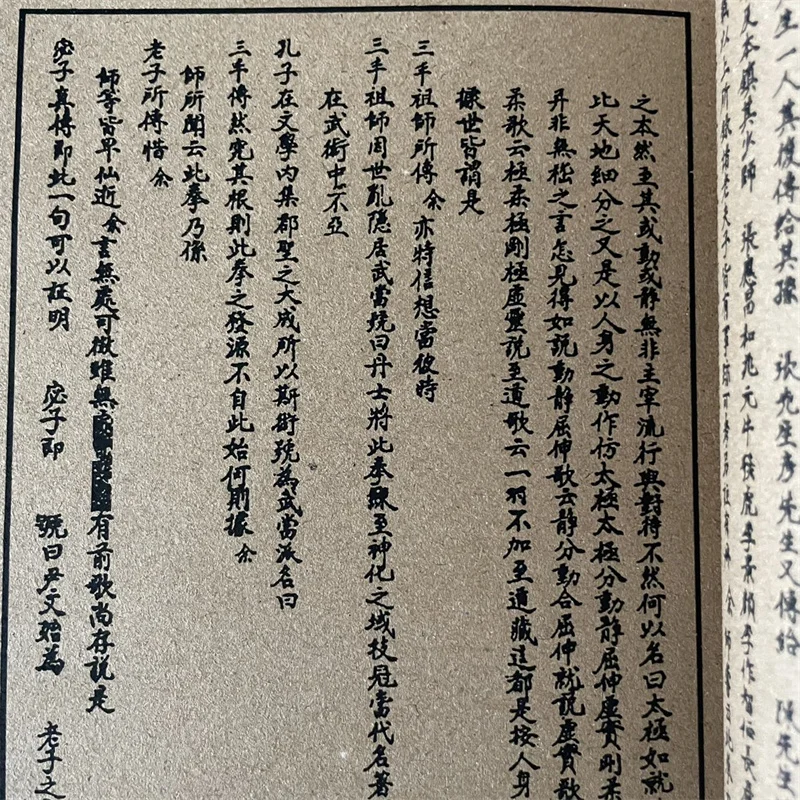 之本然至其或動或静無非主宰流行與對待不然何以名曰太極如就
比天地細分之又是以人身之動作仿太極太極分動静屈伸虛實剛柔
并非無极之言怎見得如説動静屈伸歌云静分動合屈伸就説虛實歌
柔歌云極柔極剛極虛靈説至道歌云一羽不加至道藏這都是按人身
據世皆謂是
三丰祖師所傳余亦特信想當彼時
三丰祖師因世亂隐居武當號曰丹士將此拳驟至神化之域技冠當代名著
在武術中不亞
孔子在文學内集郡聖之大成所以斯術號為武當派名曰
三丰傳然究其根則此拳之發源不自此始何則據余
師所聞云此拳乃係
老子所傳惜余
師等皆早仙逝余言無處可徵雖無有前歌尚存説是
宓子真傳即此一句可以証明 宓子即 號曰尹文始為 老子之
生一人其後傳給其 張 先生彦先生又傳給 陳先生
及本鎮其少師 張應昌和兆元牛發虎李景顏李作智